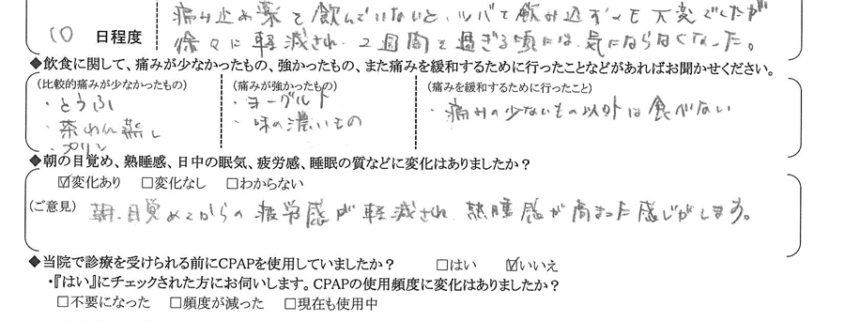 痛み止め薬を飲んでいないと、ツバを飲み込むのも大変でしたが
10 日程度 徐々に軽減され、2週間を過ぎる頃には、気にならなくなった。
◆飲食に関して、痛みが少なかったもの、強かったもの、また痛みを緩和するために行ったことなどがあればお聞かせください。
(比較的痛みが少なかったもの) (痛みが強かったもの) (痛みを緩和するために行ったこと)
・とうふ ・ヨーグルト ・痛みの少ないもの以外は食べない
・茶わん蒸し ・味の濃いもの
・プリン
◆朝の目覚め、熟睡感、日中の眠気、疲労感、睡眠の質などに変化はありましたか?
☑変化あり □変化なし □わからない
(ご意見) 朝、目覚めてからの疲労感が軽減され、熟睡感が高まった感じがします。
◆当院で診療を受けられる前にCPAPを使用していましたか? □はい ☑いいえ
・『はい』にチェックされた方にお伺いします。CPAPの使用頻度に変化はありましたか?
□不要になった □頻度が減った □現在も使用中